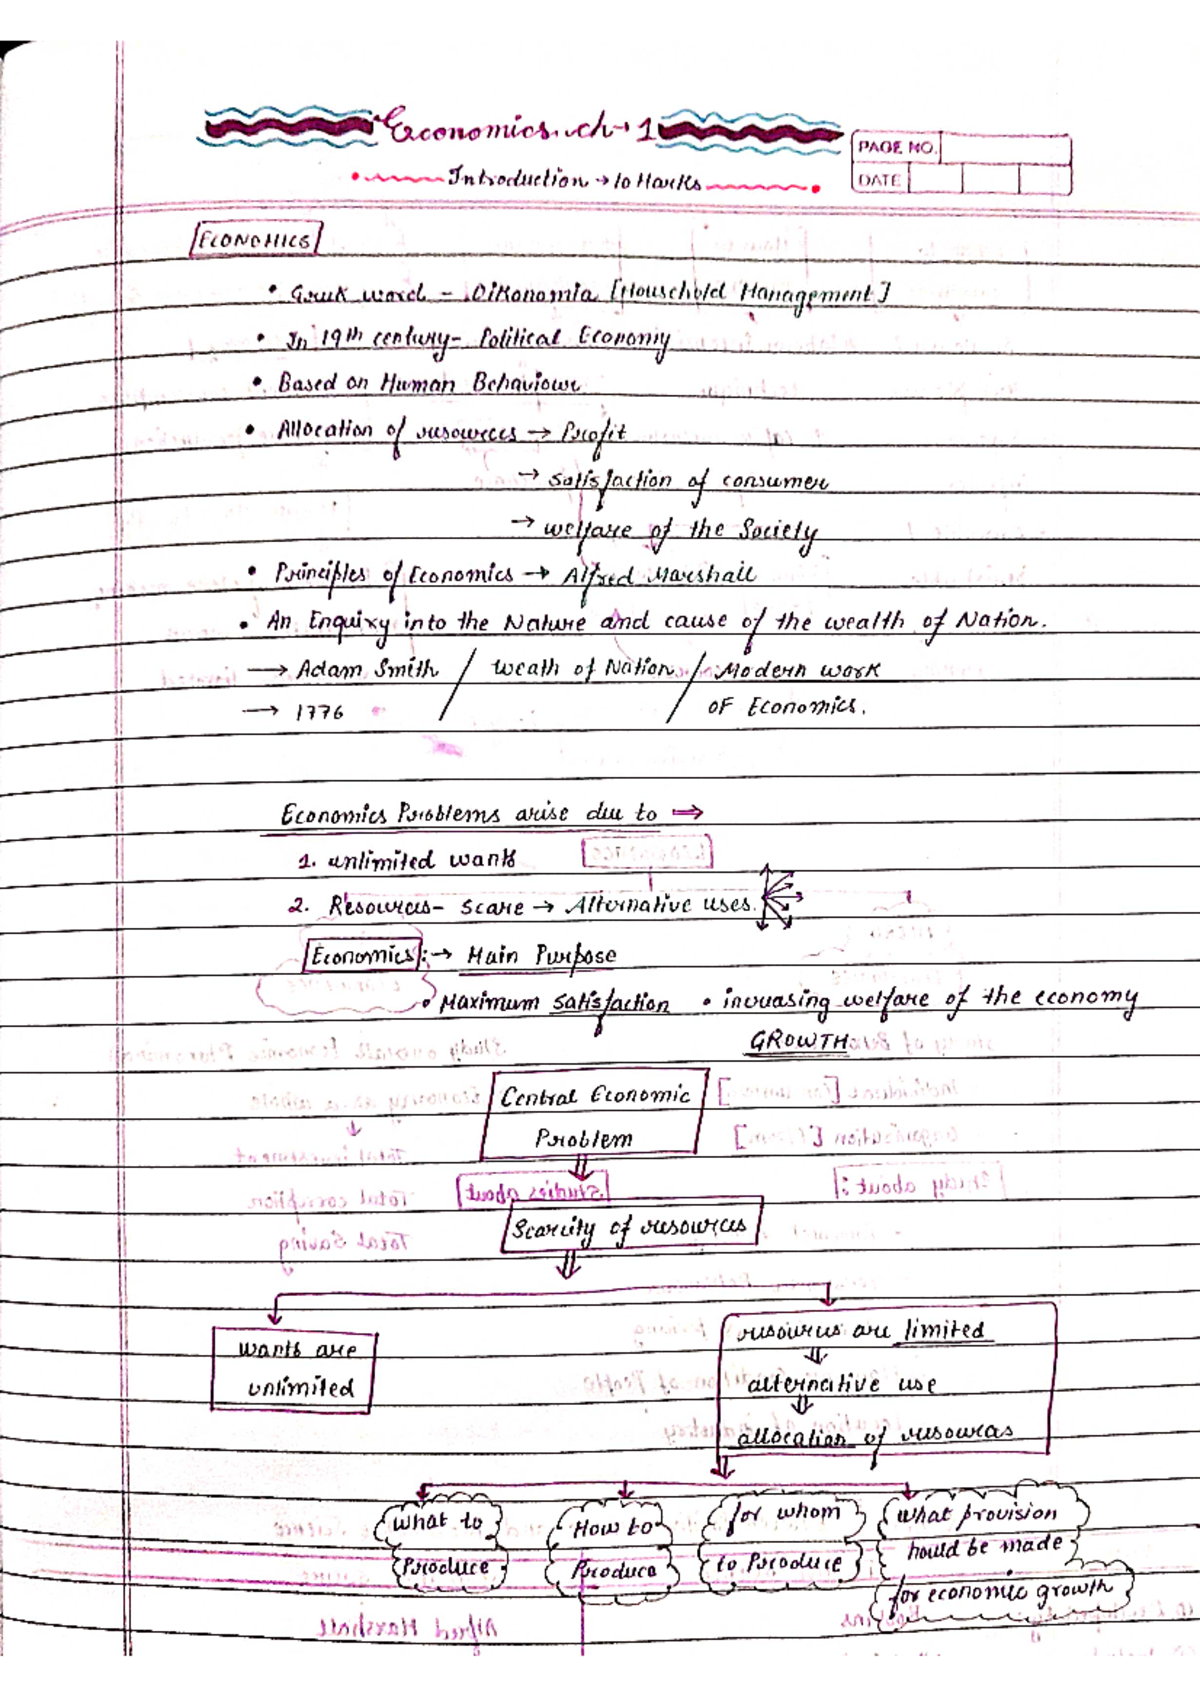 Economics. ch → 1
PAGE NO.
Introduction → 10 Marks
DATE
ECONOMICS
• Greek word - Oikonomia [Household Management]
• In 19th century- Political Economy
• Based on Human Behaviour
• Allocation of resources → Profit
→ satisfaction of consumer
→ welfare of the Society
• Principles of Economics → Alfred Marshall
• An Enquiry into the Nature and cause of the wealth of Nation.
→ Adam Smith / weath of Nation / Modern work
→ 1776 / / OF Economics.
Economics Problems arise due to ⇒
1. unlimited wants
2. Resources- scare → Alternative uses.
Economics :→ Main Purpose
• Maximum satisfaction • increasing welfare of the economy
GROWTH
Central Economic
Problem
Scarcity of resources
wants are
unlimited
resources are limited
alternative use
allocation of resources
what to
Produce
How to
Produce
for whom
to Produce
what provision
hould be made
for economic growth